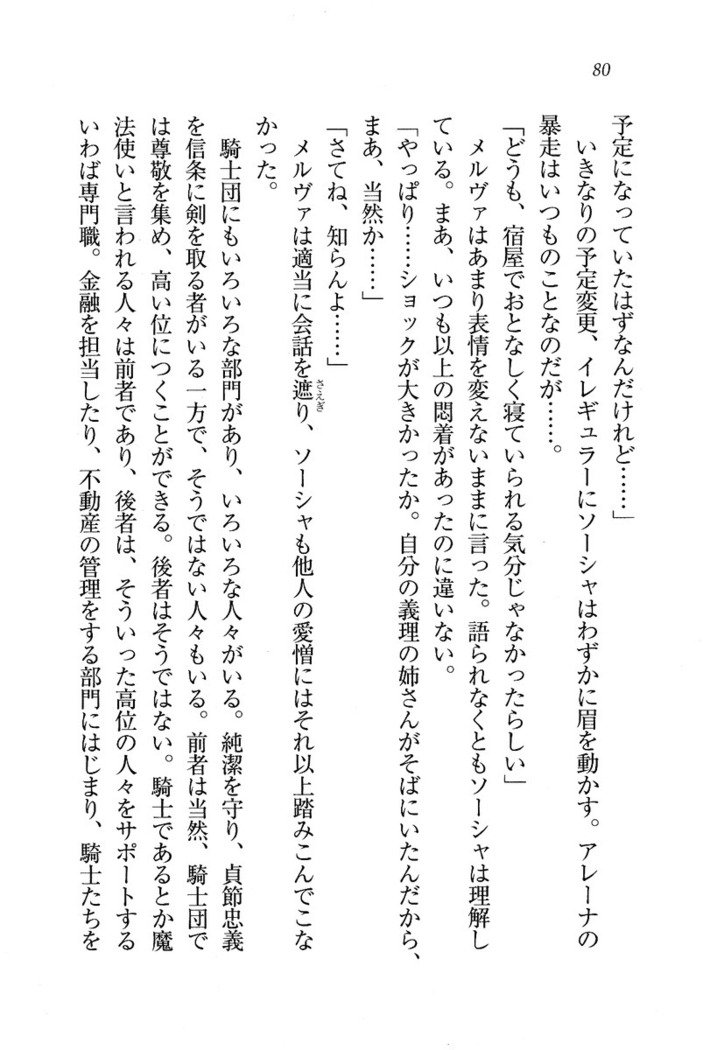 80
予定になっていたはずなんだけれど……」
いきなりの予定変更、イレギュラーにソーシャはわずかに眉を動かす。アレーナの
暴走はいつものことなのだが……。
「どうも、宿屋でおとなしく寝ていられる気分じゃなかったらしい」
メルヴァはあまり表情を変えないままに言った。語られなくともソーシャは理解し
ている。まあ、いつも以上の悶着があったのに違いない。
「やっぱり……ショックが大きかったか。自分の義理の姉さんがそばにいたんだから、
まあ、当然か……」
「さてね、知らんよ……」
メルヴァは適当に会話を遮り、ソーシャも他人の愛憎にはそれ以上踏みこんでこな
さえぎ
かった。
騎士団にもいろいろな部門があり、いろいろな人々がいる。純潔を守り、貞節忠義
を信条に剣を取る者がいる一方で、そうではない人々もいる。前者は当然、騎士団で
は尊敬を集め、高い位につくことができる。後者はそうではない。騎士であるとか魔
法使いと言われる人々は前者であり、後者は、そういった高位の人々をサポートする
いわば専門職。金融を担当したり、不動産の管理をする部門にはじまり、騎士たちを